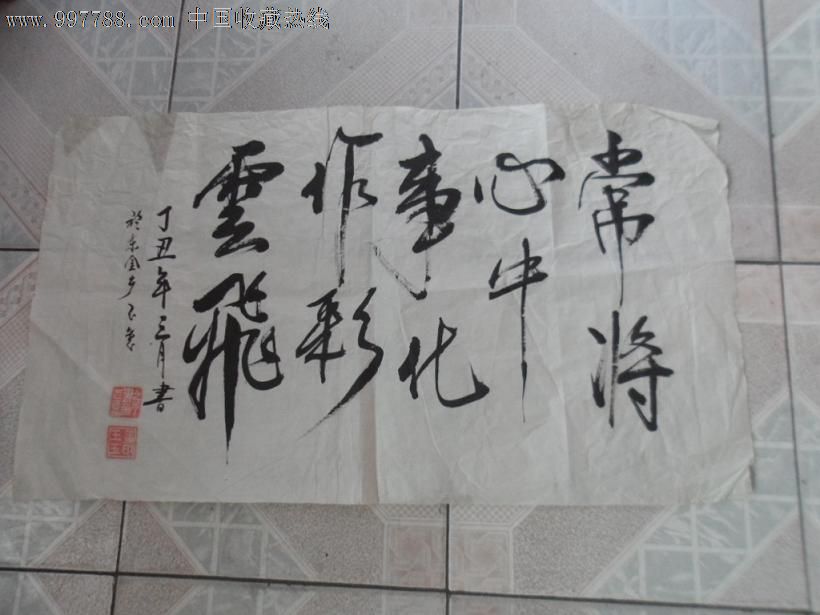 www.997788.com 中国收藏热线
常将
心中
事化
作彩
雲飛
丁丑年三月書
於东